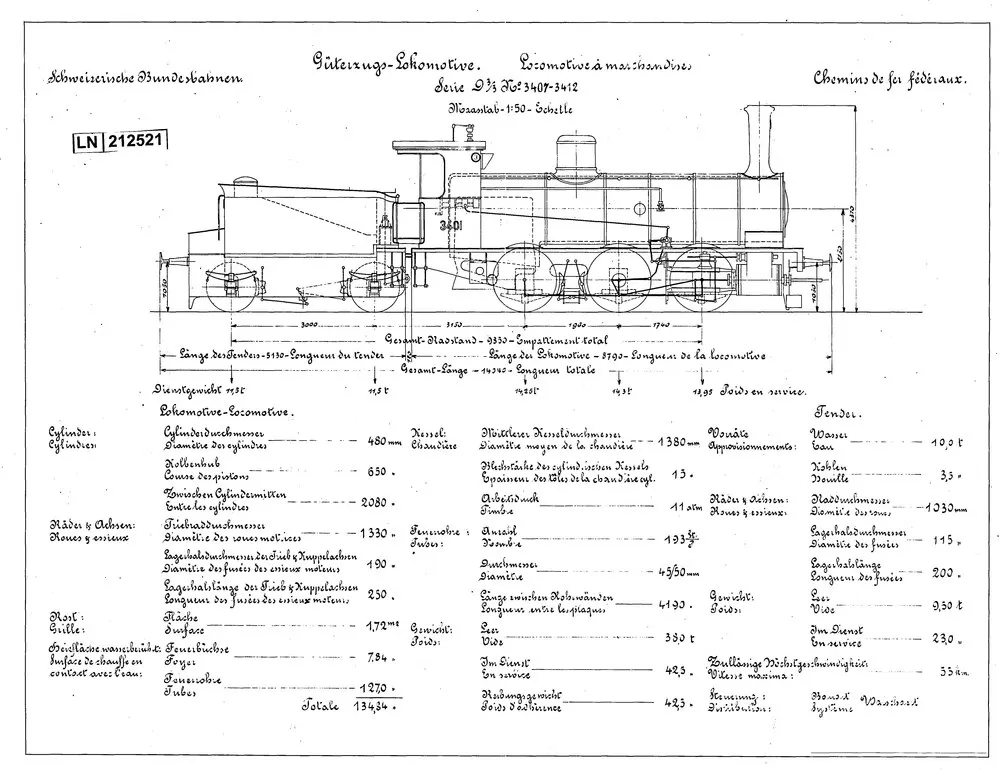 Güterzugs-Lokomotive. Locomotive à marchandises
Schweizerische Bundesbahnen.
Serie D 3/3 No 3407-3412
Chemins de fer fédéraux.
Masstab-1:50-Echelle
LN 212521
3401
1030
1030
2150
3000
3150
1900
1740
Gesamt-Radstand-9830-Empattement total
Länge des Tenders-5130-Longueur du tender
Länge der Lokomotive-8790-Longueur de la locomotive
Gesamt-Länge-14040-Longueur totale
Dienstgewicht 11,5t
11,5t
14,25t
14,3t
13,95
Poids en service.
Lokomotive-Locomotive.
Cylinder:
Cylindres:
Cylinderdurchmesser
Diamètre des cylindres 480 mm
Kolbenhub
Course des pistons 650 "
Zwischen Cylindermitten
Entre les cylindres 2080 "
Räder & Achsen:
Roues & essieux
Triebraddurchmesser
Diamètre des roues motrices 1330 "
Lagerhalsdurchmesser der Trieb & Kuppelachsen
Diamètre des fusées des essieux moteurs 190 "
Lagerhalslänge der Trieb & Kuppelachsen
Longueur des fusées des essieux moteurs 250 "
Rost:
Grille:
Fläche
Surface 1,72 m2
Heizfläche wasserberührt:
Surface de chauffe en
contact avec l'eau:
Feuerbüchse
Foyer 7,84 "
Feuerrohre
Tubes 127,0 "
Totale 134,84 "
Kessel:
Chaudière
Mittlerer Kesseldurchmesser
Diamètre moyen de la chaudière 1380 mm
Blechstärke des cylindrischen Kessels
Epaisseur des tôles de la chaudière cyl. 15 "
Arbeitsdruck
Timbre 11 atm
Feuerrohre:
Tubes:
Anzahl
Nombre 193
Durchmesser
Diamètre 45/50 mm
Länge zwischen Rohrwänden
Longueur entre les plaques 4190 "
Gewicht:
Poids:
Leer
Vide 38,0 t
Im Dienst
En service 42,5 "
Reibungsgewicht
Poids d'adhérence 42,5 "
Tender.
Vorräte
Approvisionnements:
Wasser
Eau 10,0 t
Kohlen
Houille 3,5 "
Räder & Achsen:
Roues & essieux:
Raddurchmesser
Diamètre des roues 1030 mm
Lagerhalsdurchmesser
Diamètre des fusées 115 "
Lagerhalslänge
Longueur des fusées 200 "
Gewicht:
Poids:
Leer
Vide 9,50 t
Im Dienst
En service 23,0 "
Zulässige Höchstgeschwindigkeit:
Vitesse maxima: 55 km.
Steuerung:
Distribution:
Bauart
Système Waschaert